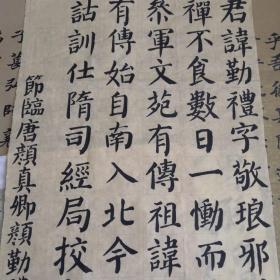 君諱勤禮字敬琅邪
禪不食數日一慟而
叅軍文苑有傳祖諱
有傳始自南入北今
詁訓仕隋司經局挍
節臨唐顏真卿顏勤